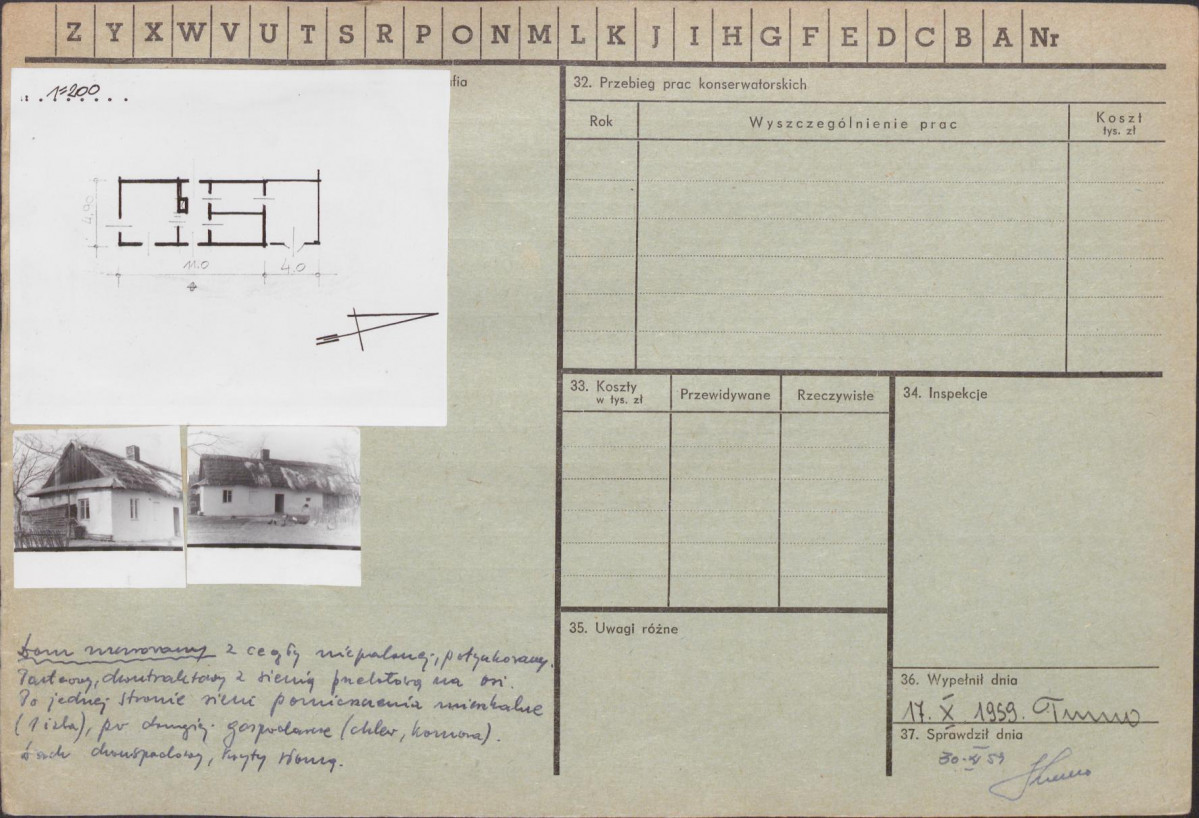 Z Y X W V U T S R P O N M L K J I H G F E D C B A Nr
fia
1=200
4,00
11.0
4,0
Dom murowany z cegły niepalonej, potynkowany.
Parterowy, dwutraktowy z sienią przelotową na osi.
Po jednej stronie sieni pomieszczenia mieszkalne
(1 izba), po drugiej gospodarcze (chlew, komora).
Dach dwuspadowy, kryty słomą.
32. Przebieg prac konserwatorskich
Rok
Wyszczególnienie prac
Koszt
tys. zł
33. Koszty
w tys. zł
Przewidywane
Rzeczywiste
34. Inspekcje
35. Uwagi różne
36. Wypełnił dnia
17. X 1959.
37. Sprawdził dnia
30.XI 59